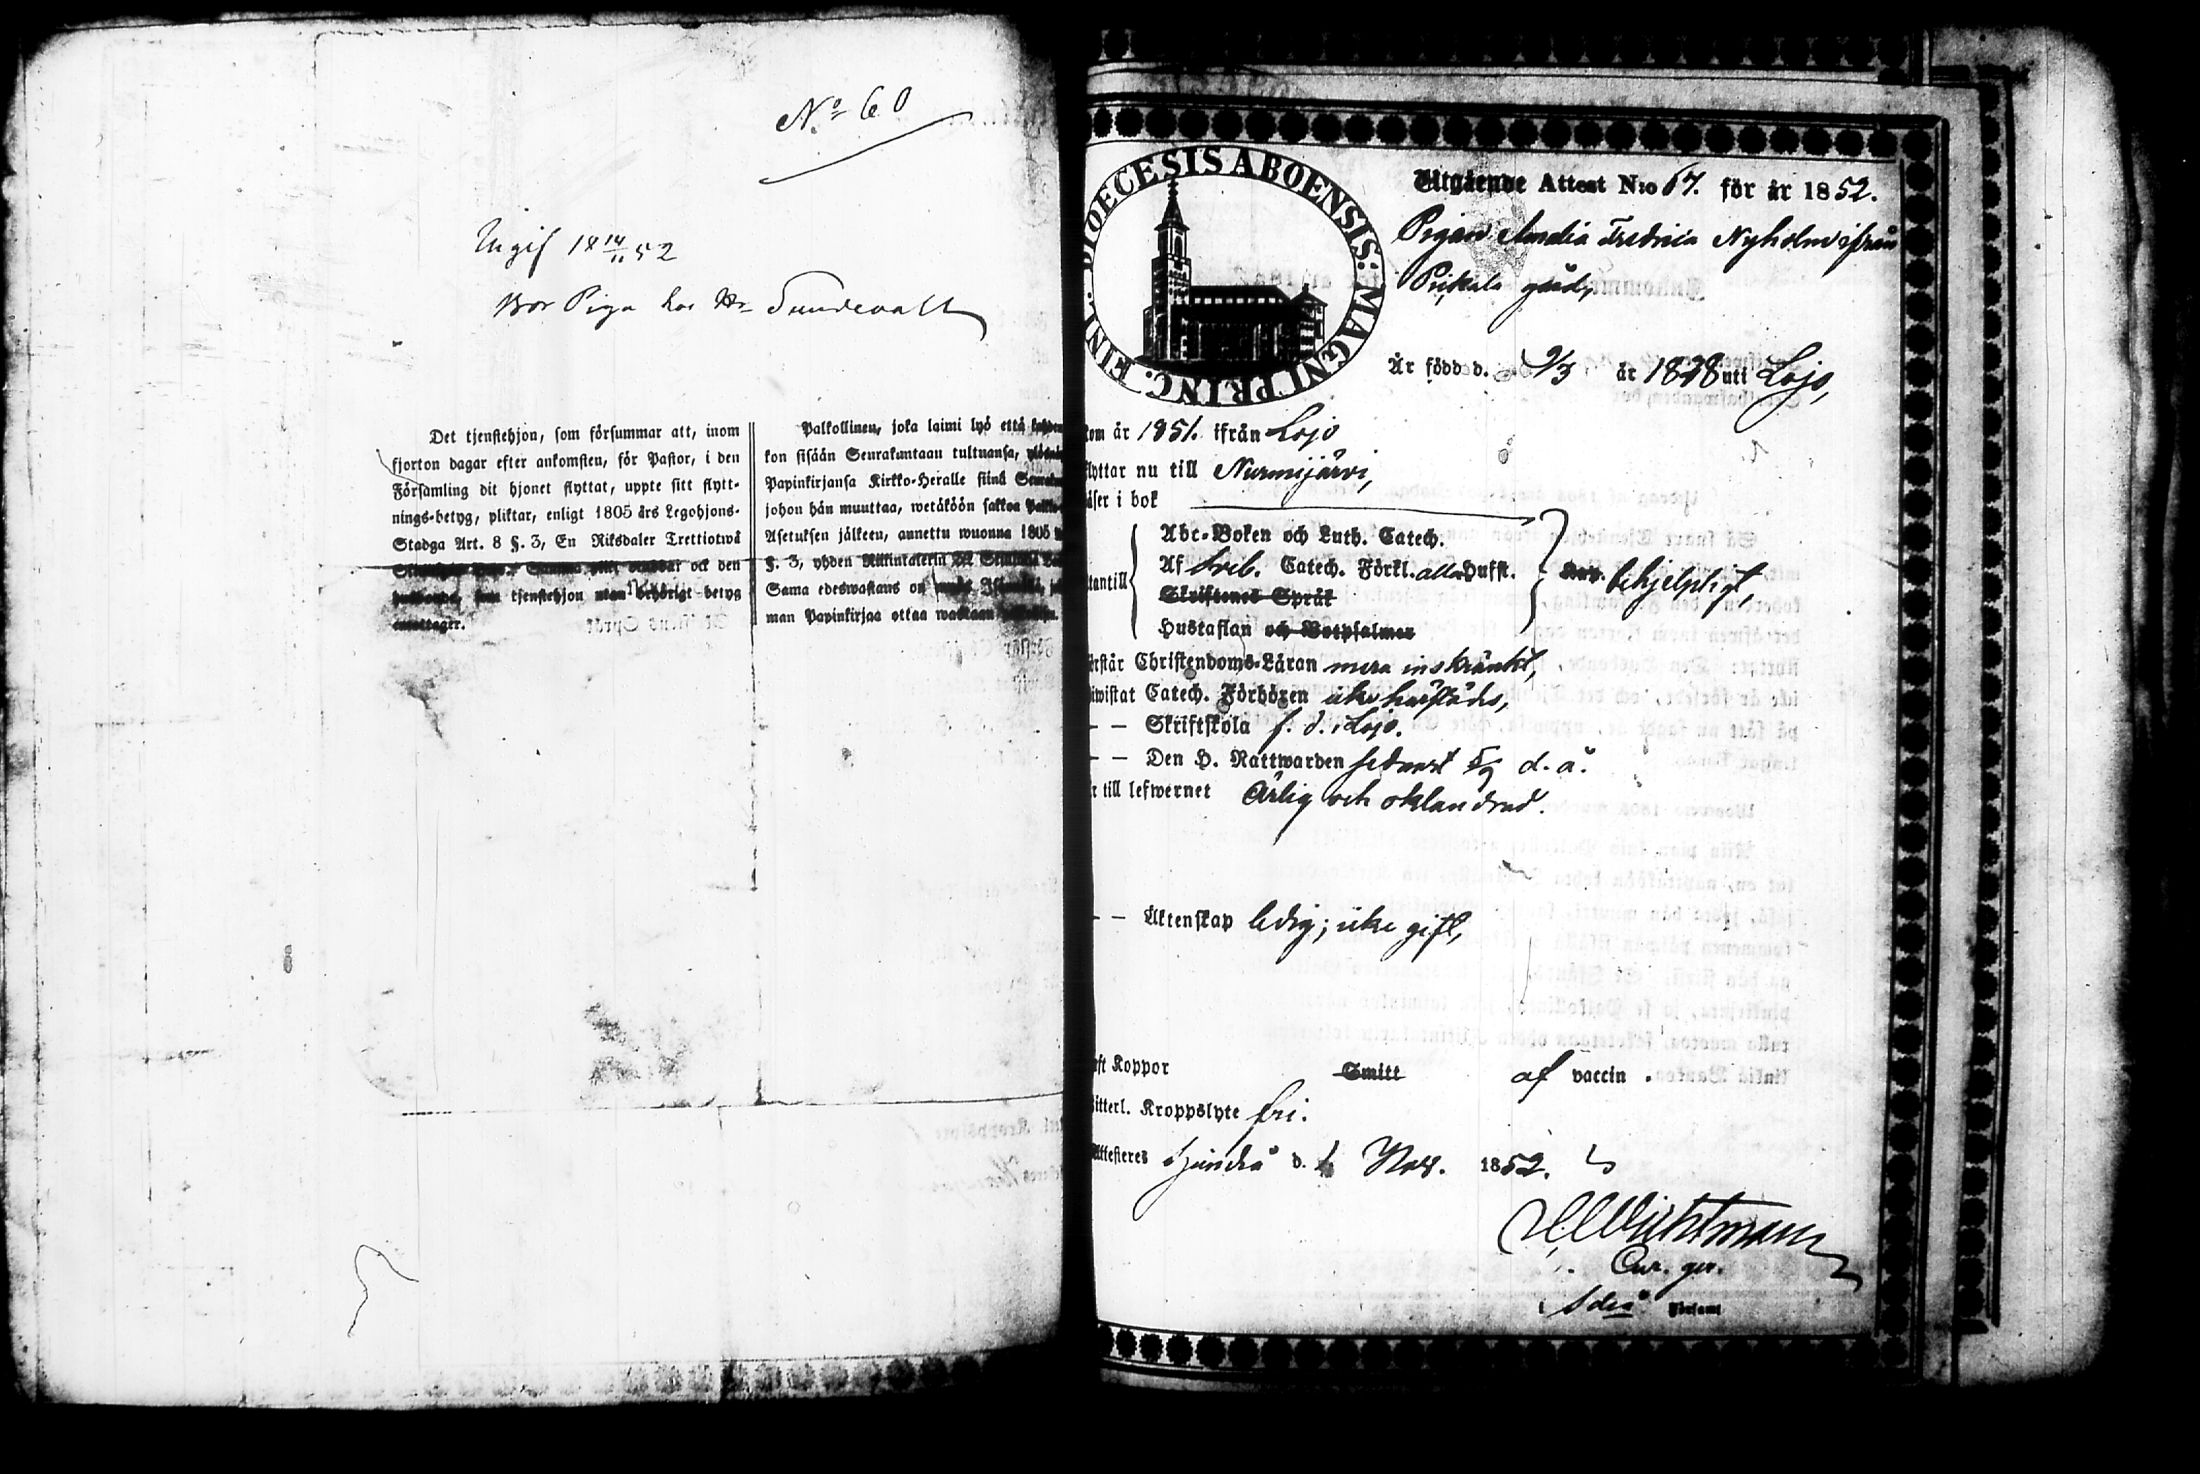 No 60
Ingif 18 14/11 52
Bor Piga hos Hr Sundevall
Det tjenstehjon, som försummar att, inom
fjorton dagar efter ankomsten, för Pastor, i den
Församling dit hjonet flyttat, uppte sitt flytt-
nings-betyg, pliktar, enligt 1805 års Legohjons-
Stadga Art. 8 §. 3, En Riksdaler Trettiotwå
ock den
tjenstehjon utan behörigt betyg
emottager.
Palkollinen, joka laimi lyö että
kon sisään Seurakuntaan tultuansa,
Papinkirjansa Kirkko-Herralle siinä
johon hän muuttaa, wetäköön sakkoa
Asetuksen jälkeen, annettu wuonna 1805
§. 3, yhden
Sama edeswastaus on
man Papinkirjaa ottaa wastaan
DIOECESIS ABOENSIS: MAGNI PRINC. FINL.
Utgående Attest N:o 67. för år 1852.
Pigan Amalia Fredrica Nyholm ifrån
Pickala gård,
Är född d. 9/3 år 1828 uti Lojo,
kom år 1851. ifrån Lojo
flyttar nu till Nurmijärvi,
läser i bok
utantill
Abc-Boken och Luth. Catech.
Af Sveb. Catech. Förkl. alla Hufst.
Skriftenes Språk
Hustaflan och Botpsalmer
behjelpligt,
förstår Christendoms-Läran mera inskränkt,
bewistat Catech. Förhören icke härstädes,
— — Skriftskola f. d. i Lojo.
— — Den H. Nattwarden sednast 5/9 d. å.
är till lefwernet Ärlig och oklandrad.
— — Äktenskap ledig; icke gift,
haft Koppor Smitt af vaccin.
Witterl. Kroppslyte fri.
Attesteres Sjundeå d. 1 Nov. 1852.
Wichtman
Cur. ger.
i Sdeå Församl